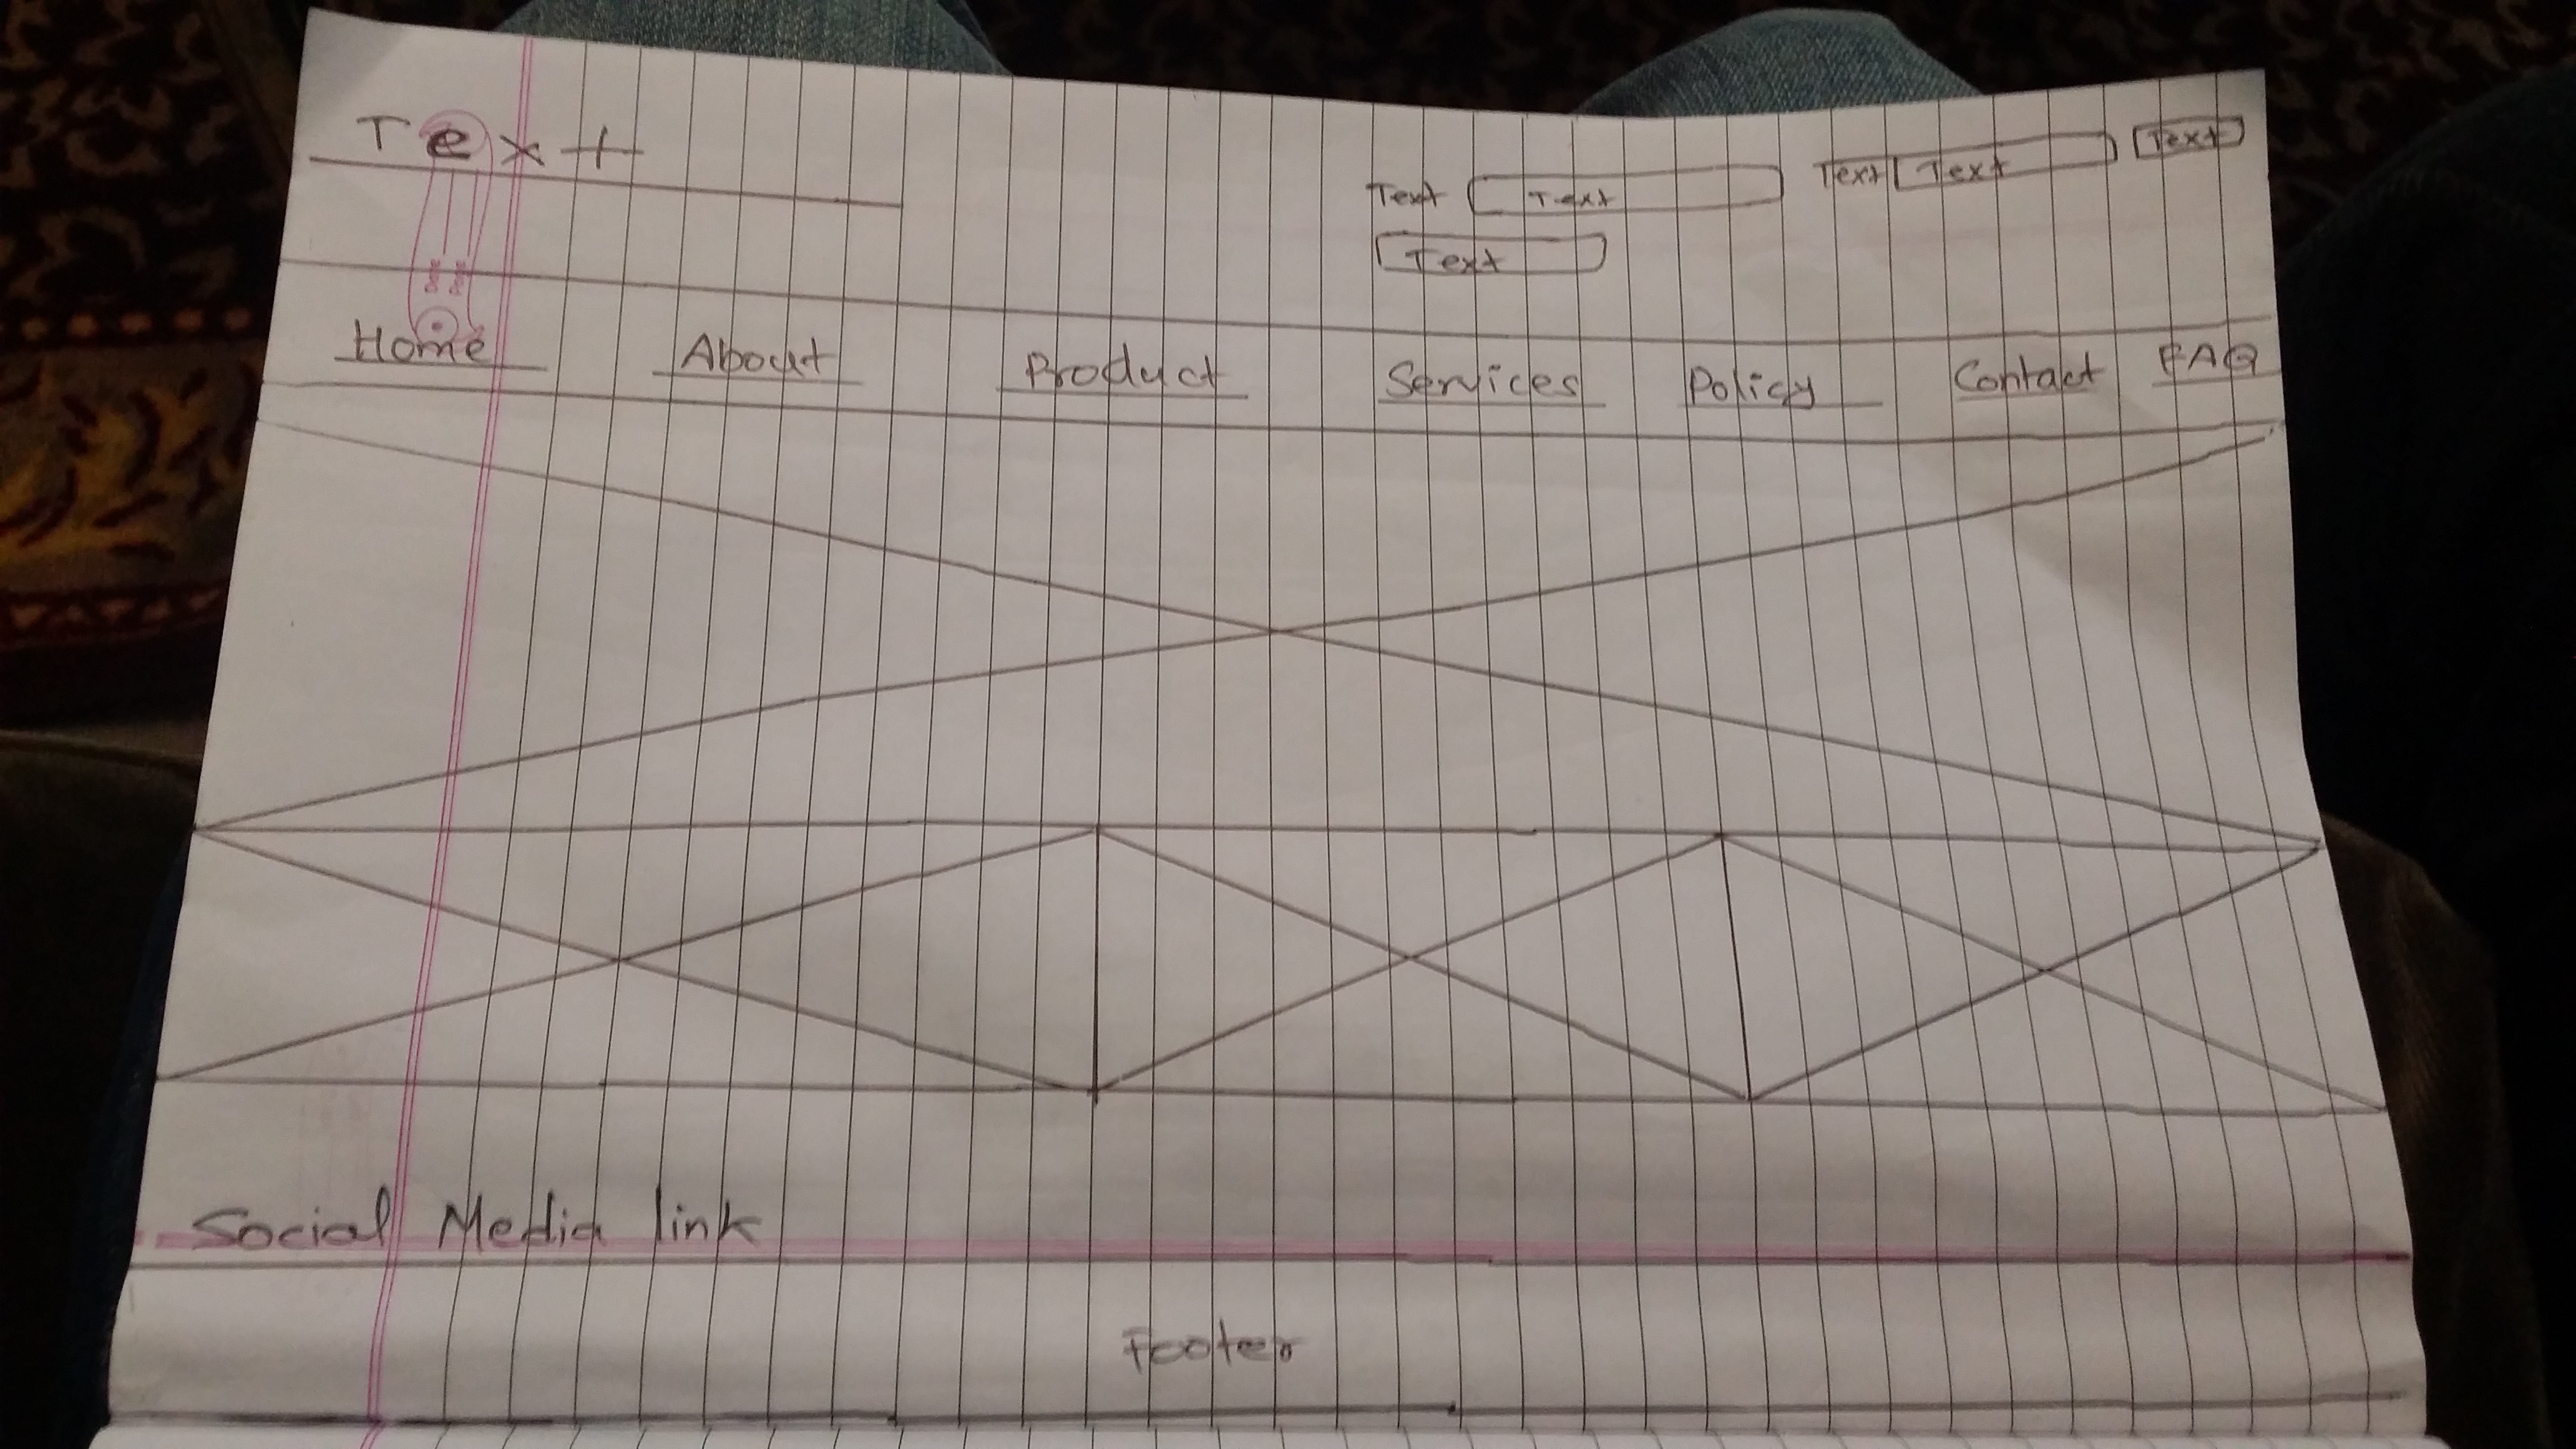 Text
Text Text Text Text Text
Text
Date
Page
Home About Product Services Policy Contact FAQ
Social Media link
Footer